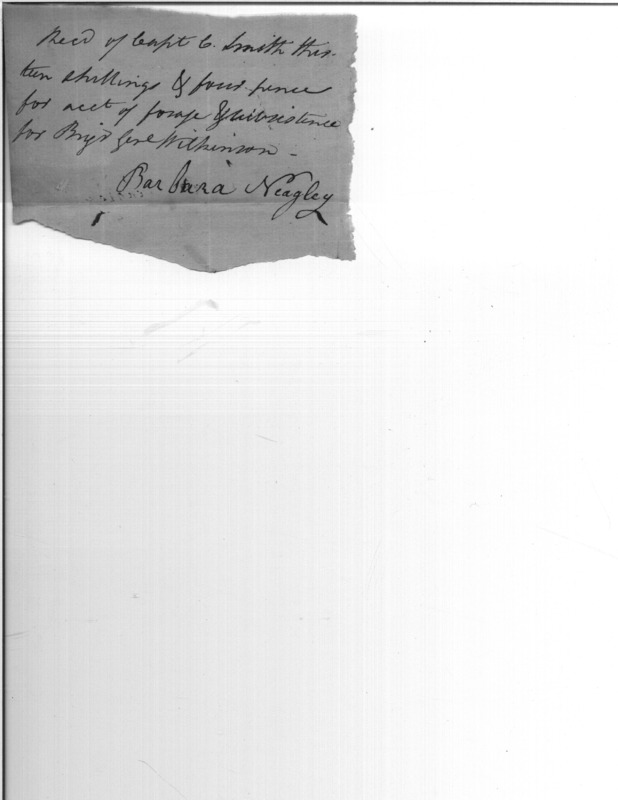 Rec'd of Capt C. Smith thir-
teen shillings & four pence
for acct of forage & subsistence
for Brig'd Genl Wilkinson -
Barbara Neagley